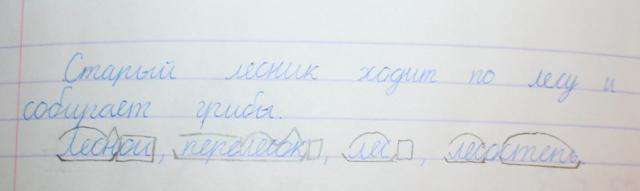 Старый лесник ходит по лесу и
собирает грибы.
лесной, перелесок, лес, лесостепь,